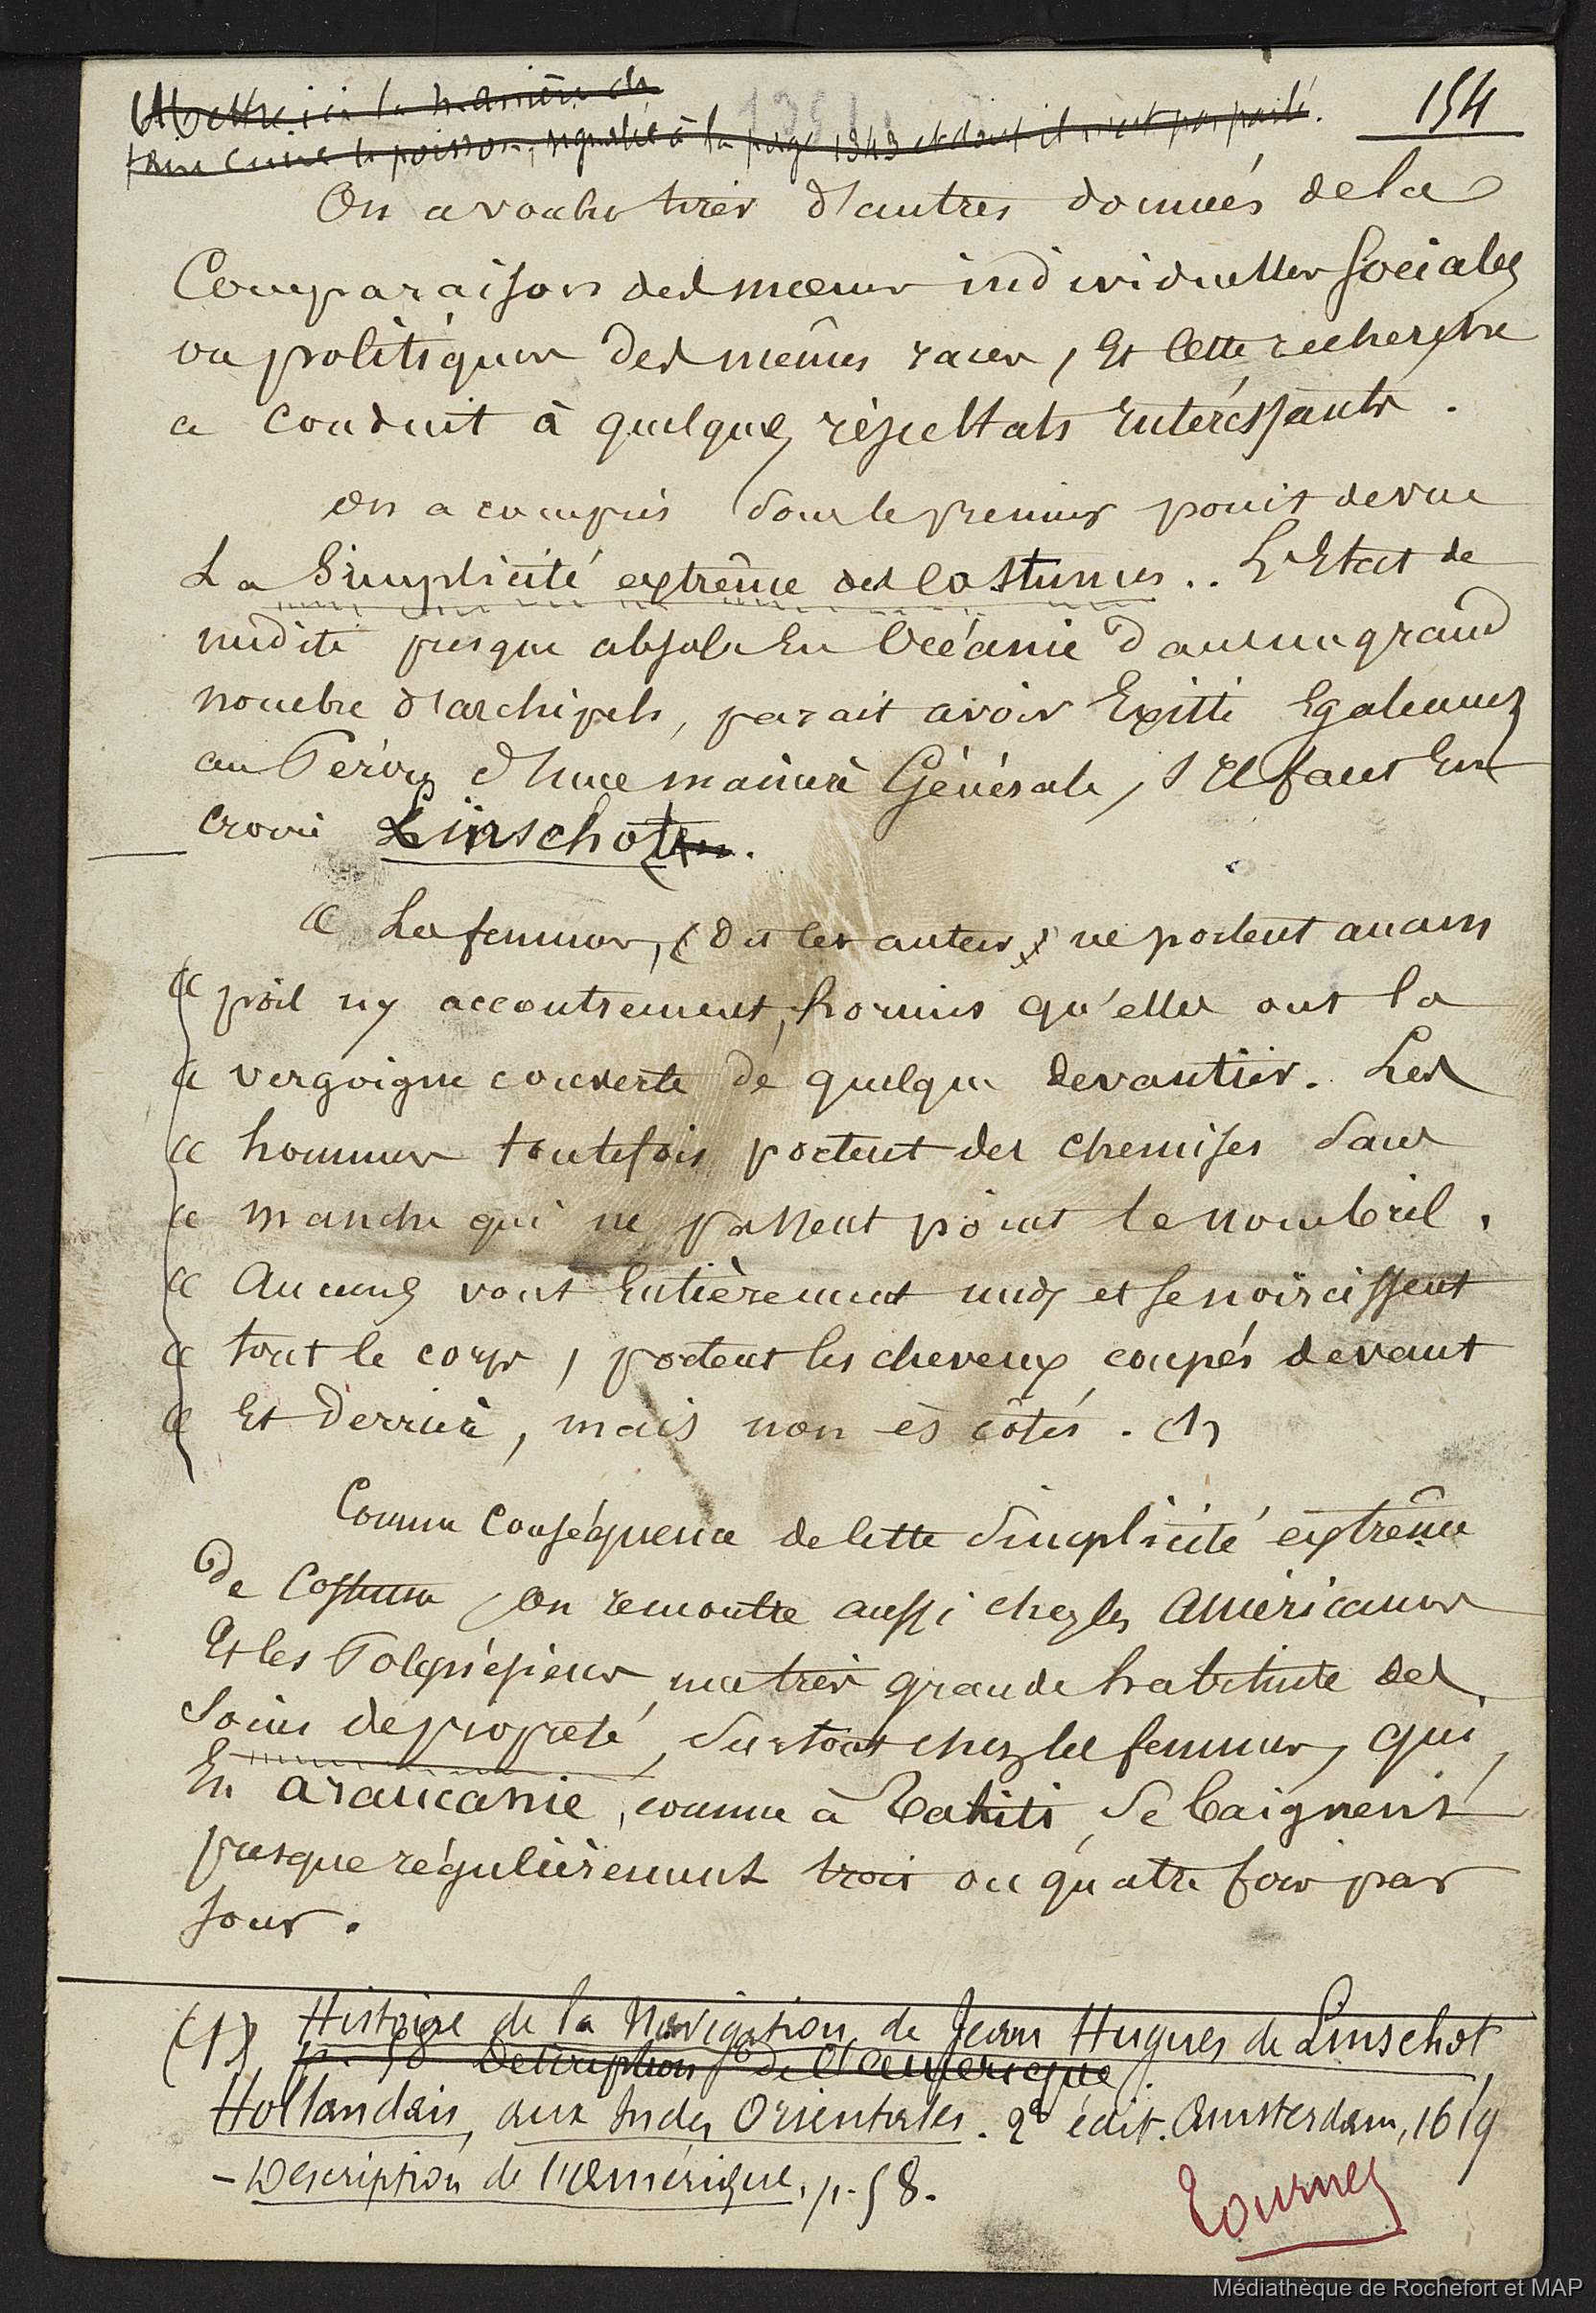 Mettre ici la manière de
faire cuire le poisson, signalée à la page 1343 et dont il n'est pas parlé.
154
On a voulu tirer d'autres données de la
Comparaison des mœurs individuelles sociales
ou politiques des mêmes races, Et cette recherche
a conduit à quelques résultats Intéressants.
On a compris sous le premier point de vue
La Simplicité extrême des Costumes.. L'Etat de
nudité presque absolu En Océanie dans un grand
nombre d'archipels, parait avoir Existé Egalement
au Pérou d'une manière Générale, s'Il faut En
croire Linschoten.
« Les femmes, (dit cet auteur) ne portent aucun
« poil ny accoutrement, hormis qu'elles ont la
« vergoigne couverte de quelque devantier. Les
« hommes toutefois portent des chemises sans
« manche qui ne passent point le nombril.
« Aucuns vont Entièrement nuds et se noircissent
« tout le corps, portent les cheveux coupés devant
« Et derrière, mais non ès côtés. (1)
Comme Conséquence de cette Simplicité extrême
de Costume, on remontre aussi chez les Américaines
Et les Polynésiens, une très grande habitude des
Soins de propreté, surtout chez les femmes, qui,
En Araucanie, comme à Tahiti, se baignent
presque régulièrement trois ou quatre fois par
Jour.
(1) Histoire de la Navigation de Jean Hugues de Linschot
p. 58 Description de l'Amérique.
Hollandais, aux Indes Orientales. 2e édit. Amsterdam, 1619
- Description de l'Amérique, p. 58.
Tournez
Médiathèque de Rochefort et MAP